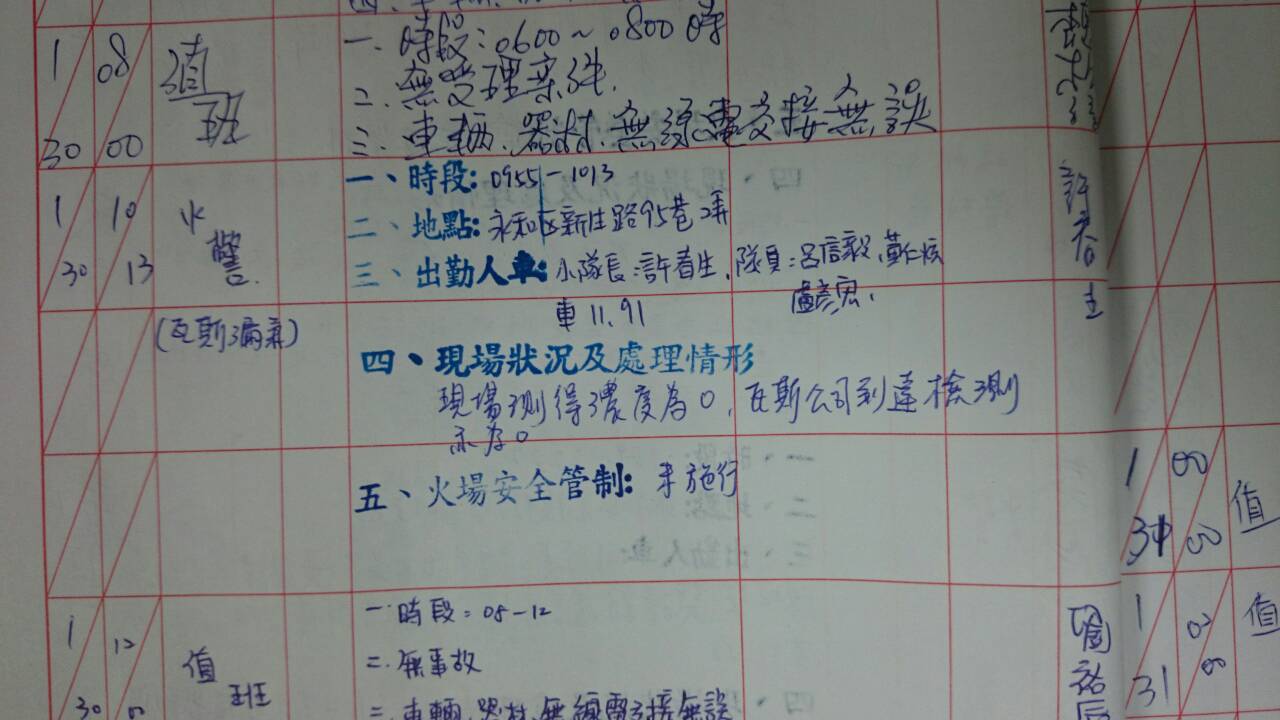 1 08
30 00
值班
一、時段:0600~0800時
二、無受理案件.
三、車輛、器材、無線電交接無誤
1 10
30 13
火警.
(瓦斯漏氣)
一、時段:0955-1013
二、地點:永和區新生路95巷2弄
三、出勤人車:小隊長:許春生、隊員:呂信毅、蘇仁
盧彥宏、
車11.91
四、現場狀況及處理情形
現場測得濃度為0,瓦斯公司到達檢測
亦為0
五、火場安全管制:未施行
許春生
1 12
30 00
值班
一.時段:08-12
二.無事故
三.車輛.器材.無線電交接無誤
1 00
31 00
值
1 02
31 00
值